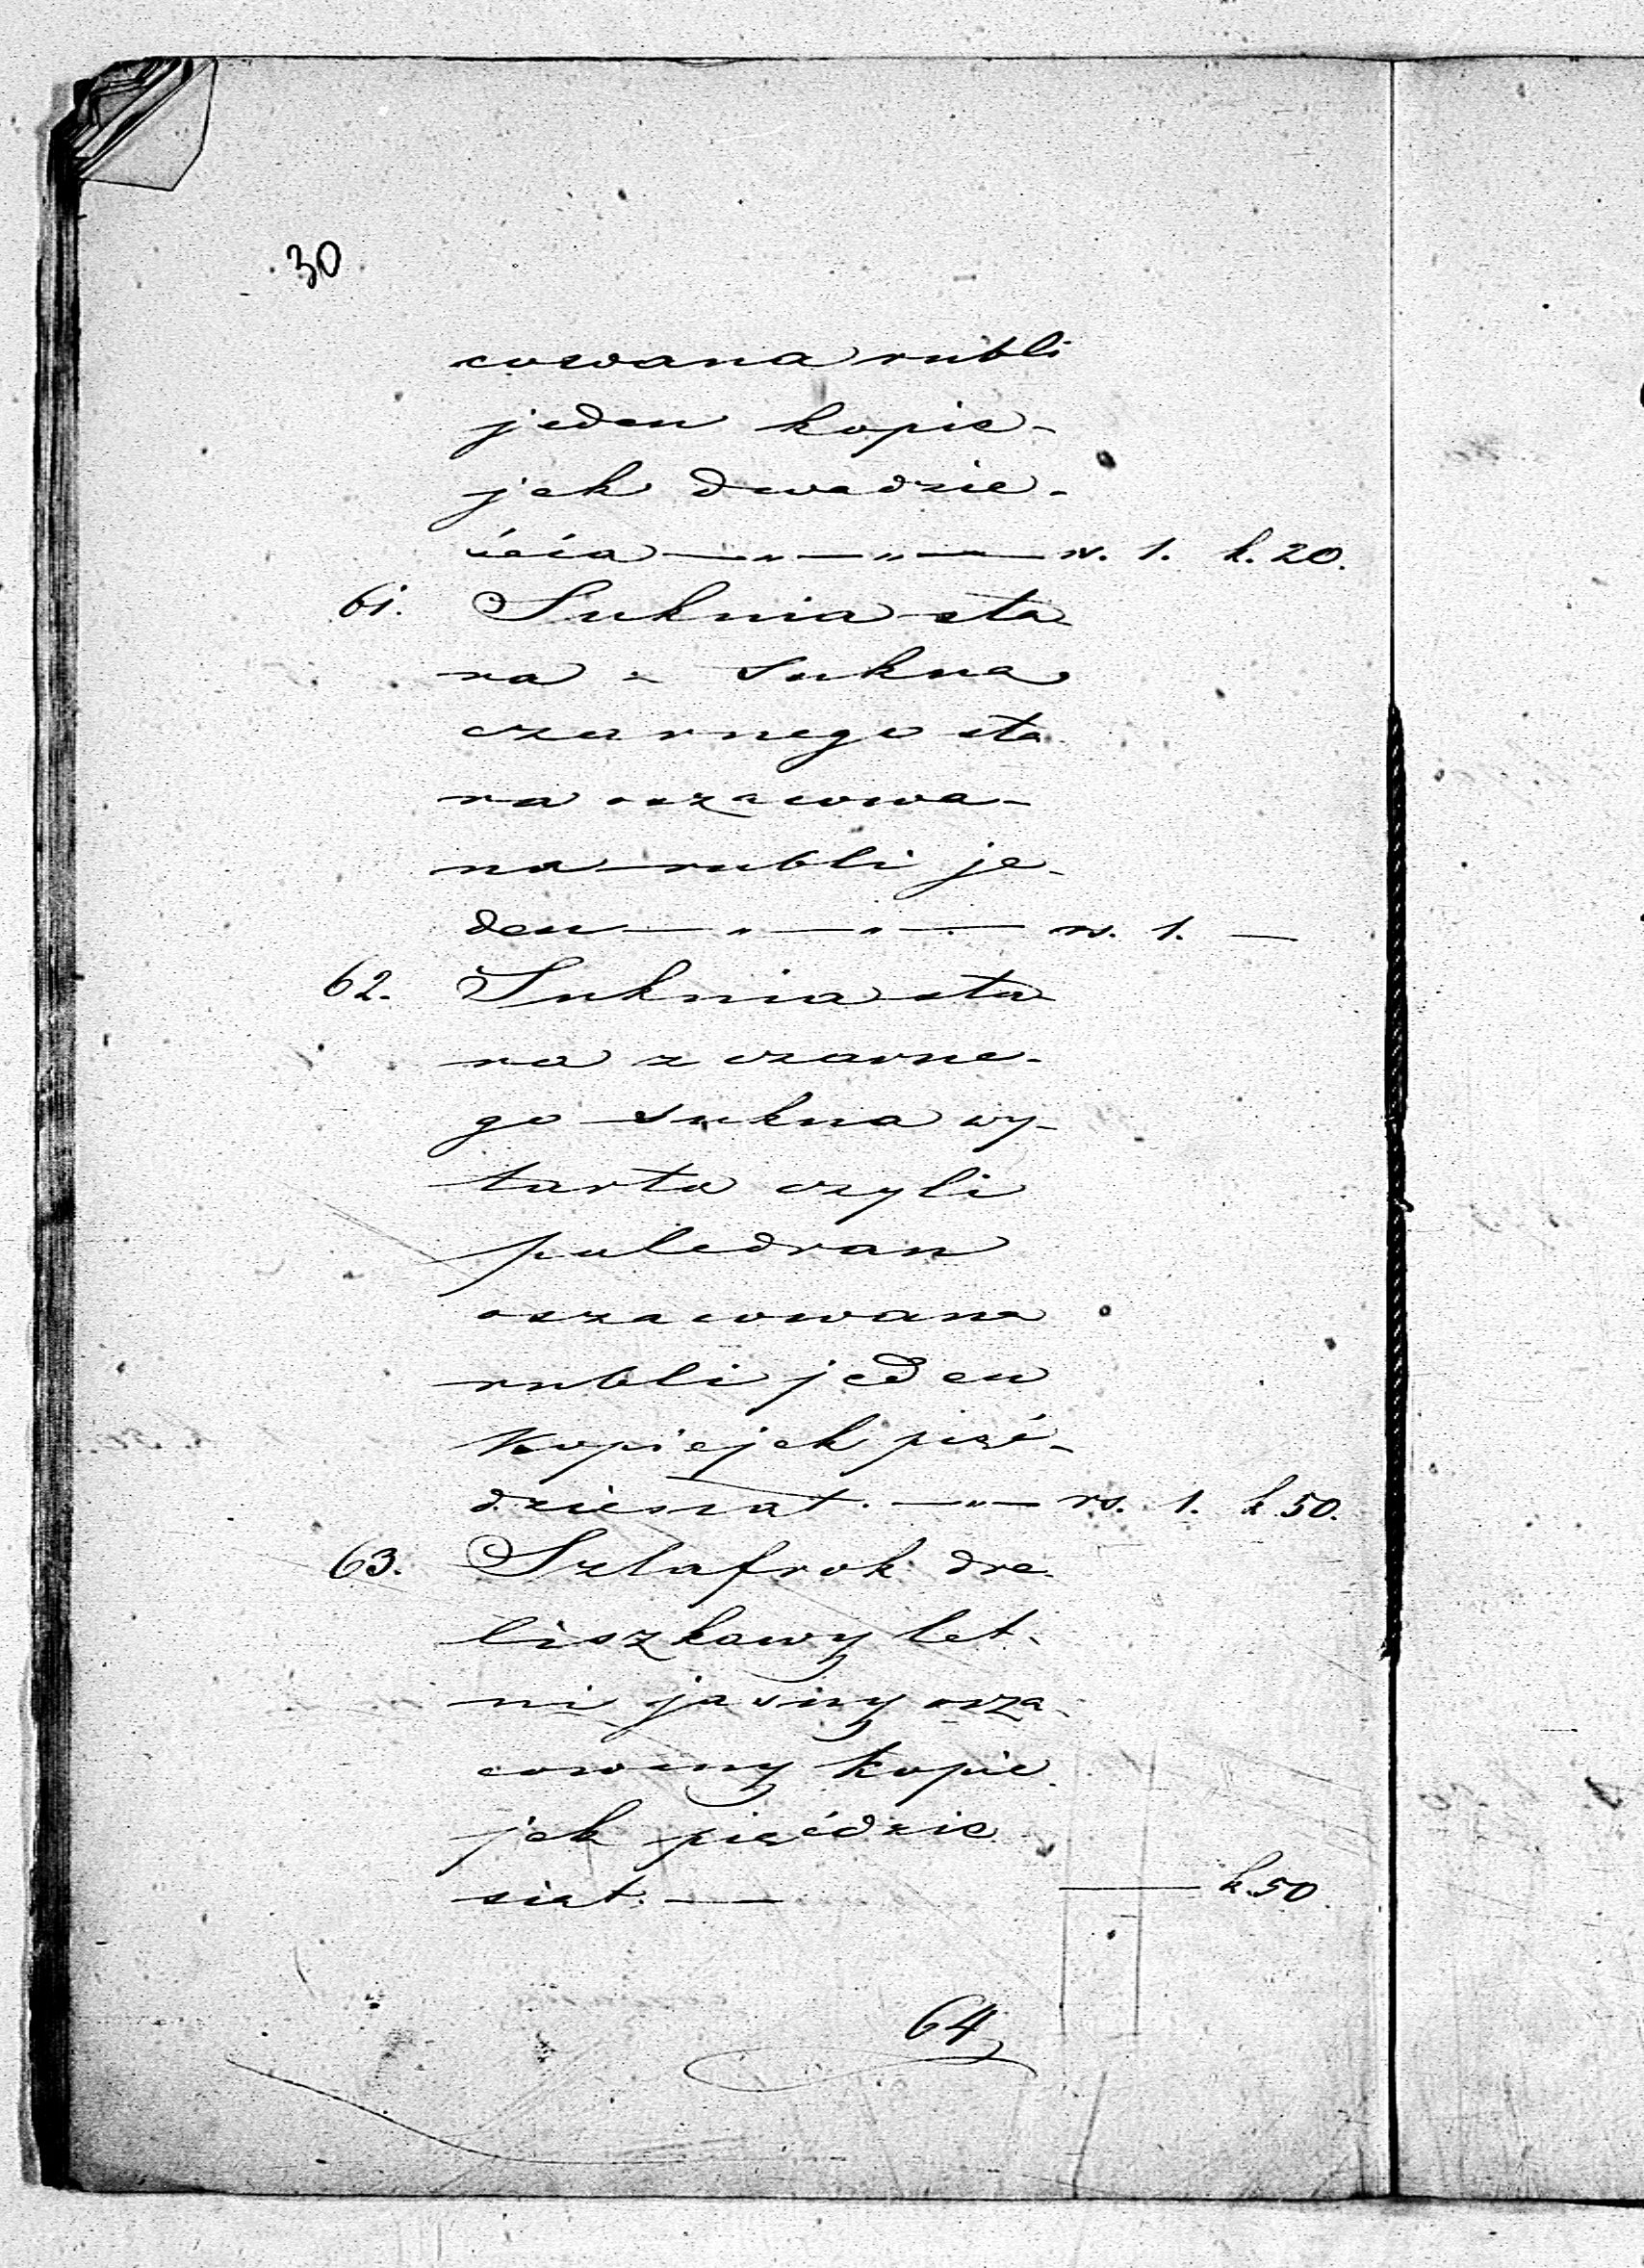 30
cowana rubli
jeden kopie-
jek dwadzie-
ścia — " — " — rs. 1. k. 20.
61. Suknia sta-
ra z sukna
czarnego sta
ra oszacowa-
na rubli je-
den — " — " — rs. 1. —
62. Suknia sta-
ra z czarne-
go sukna wy-
tarta czyli
paledran
oszacowana
rubli jeden
kopiejek pięć-
dziesiąt. — " — rs. 1. k. 50.
63. Szlafrok dre-
liszkowy let-
ni jasny osza-
cowany kopie
jek pięćdzie
siąt. — — k. 50
64